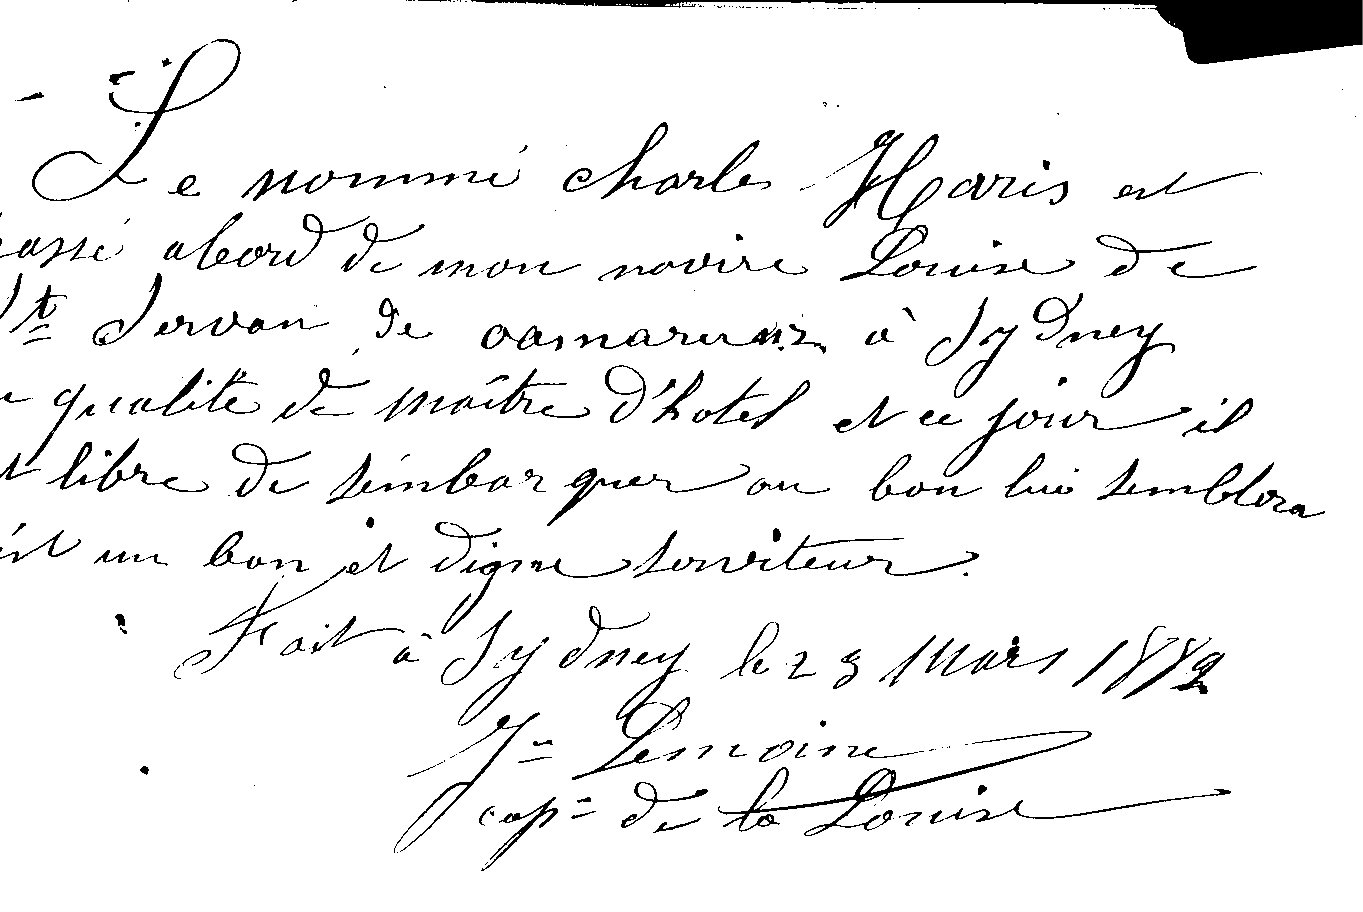 Le nommé charles Haris est
passé abord de mon navire Louise de
St Servan de oamaru à Sydney
qualité de maître d'hotel et ce jour il
est libre de s'émbarquer ou bon lui semblera
c'ést un bon et digne serviteur.
Fait à Sydney le 23 Mars 1882
Jn Lemoine
capn de la Louise